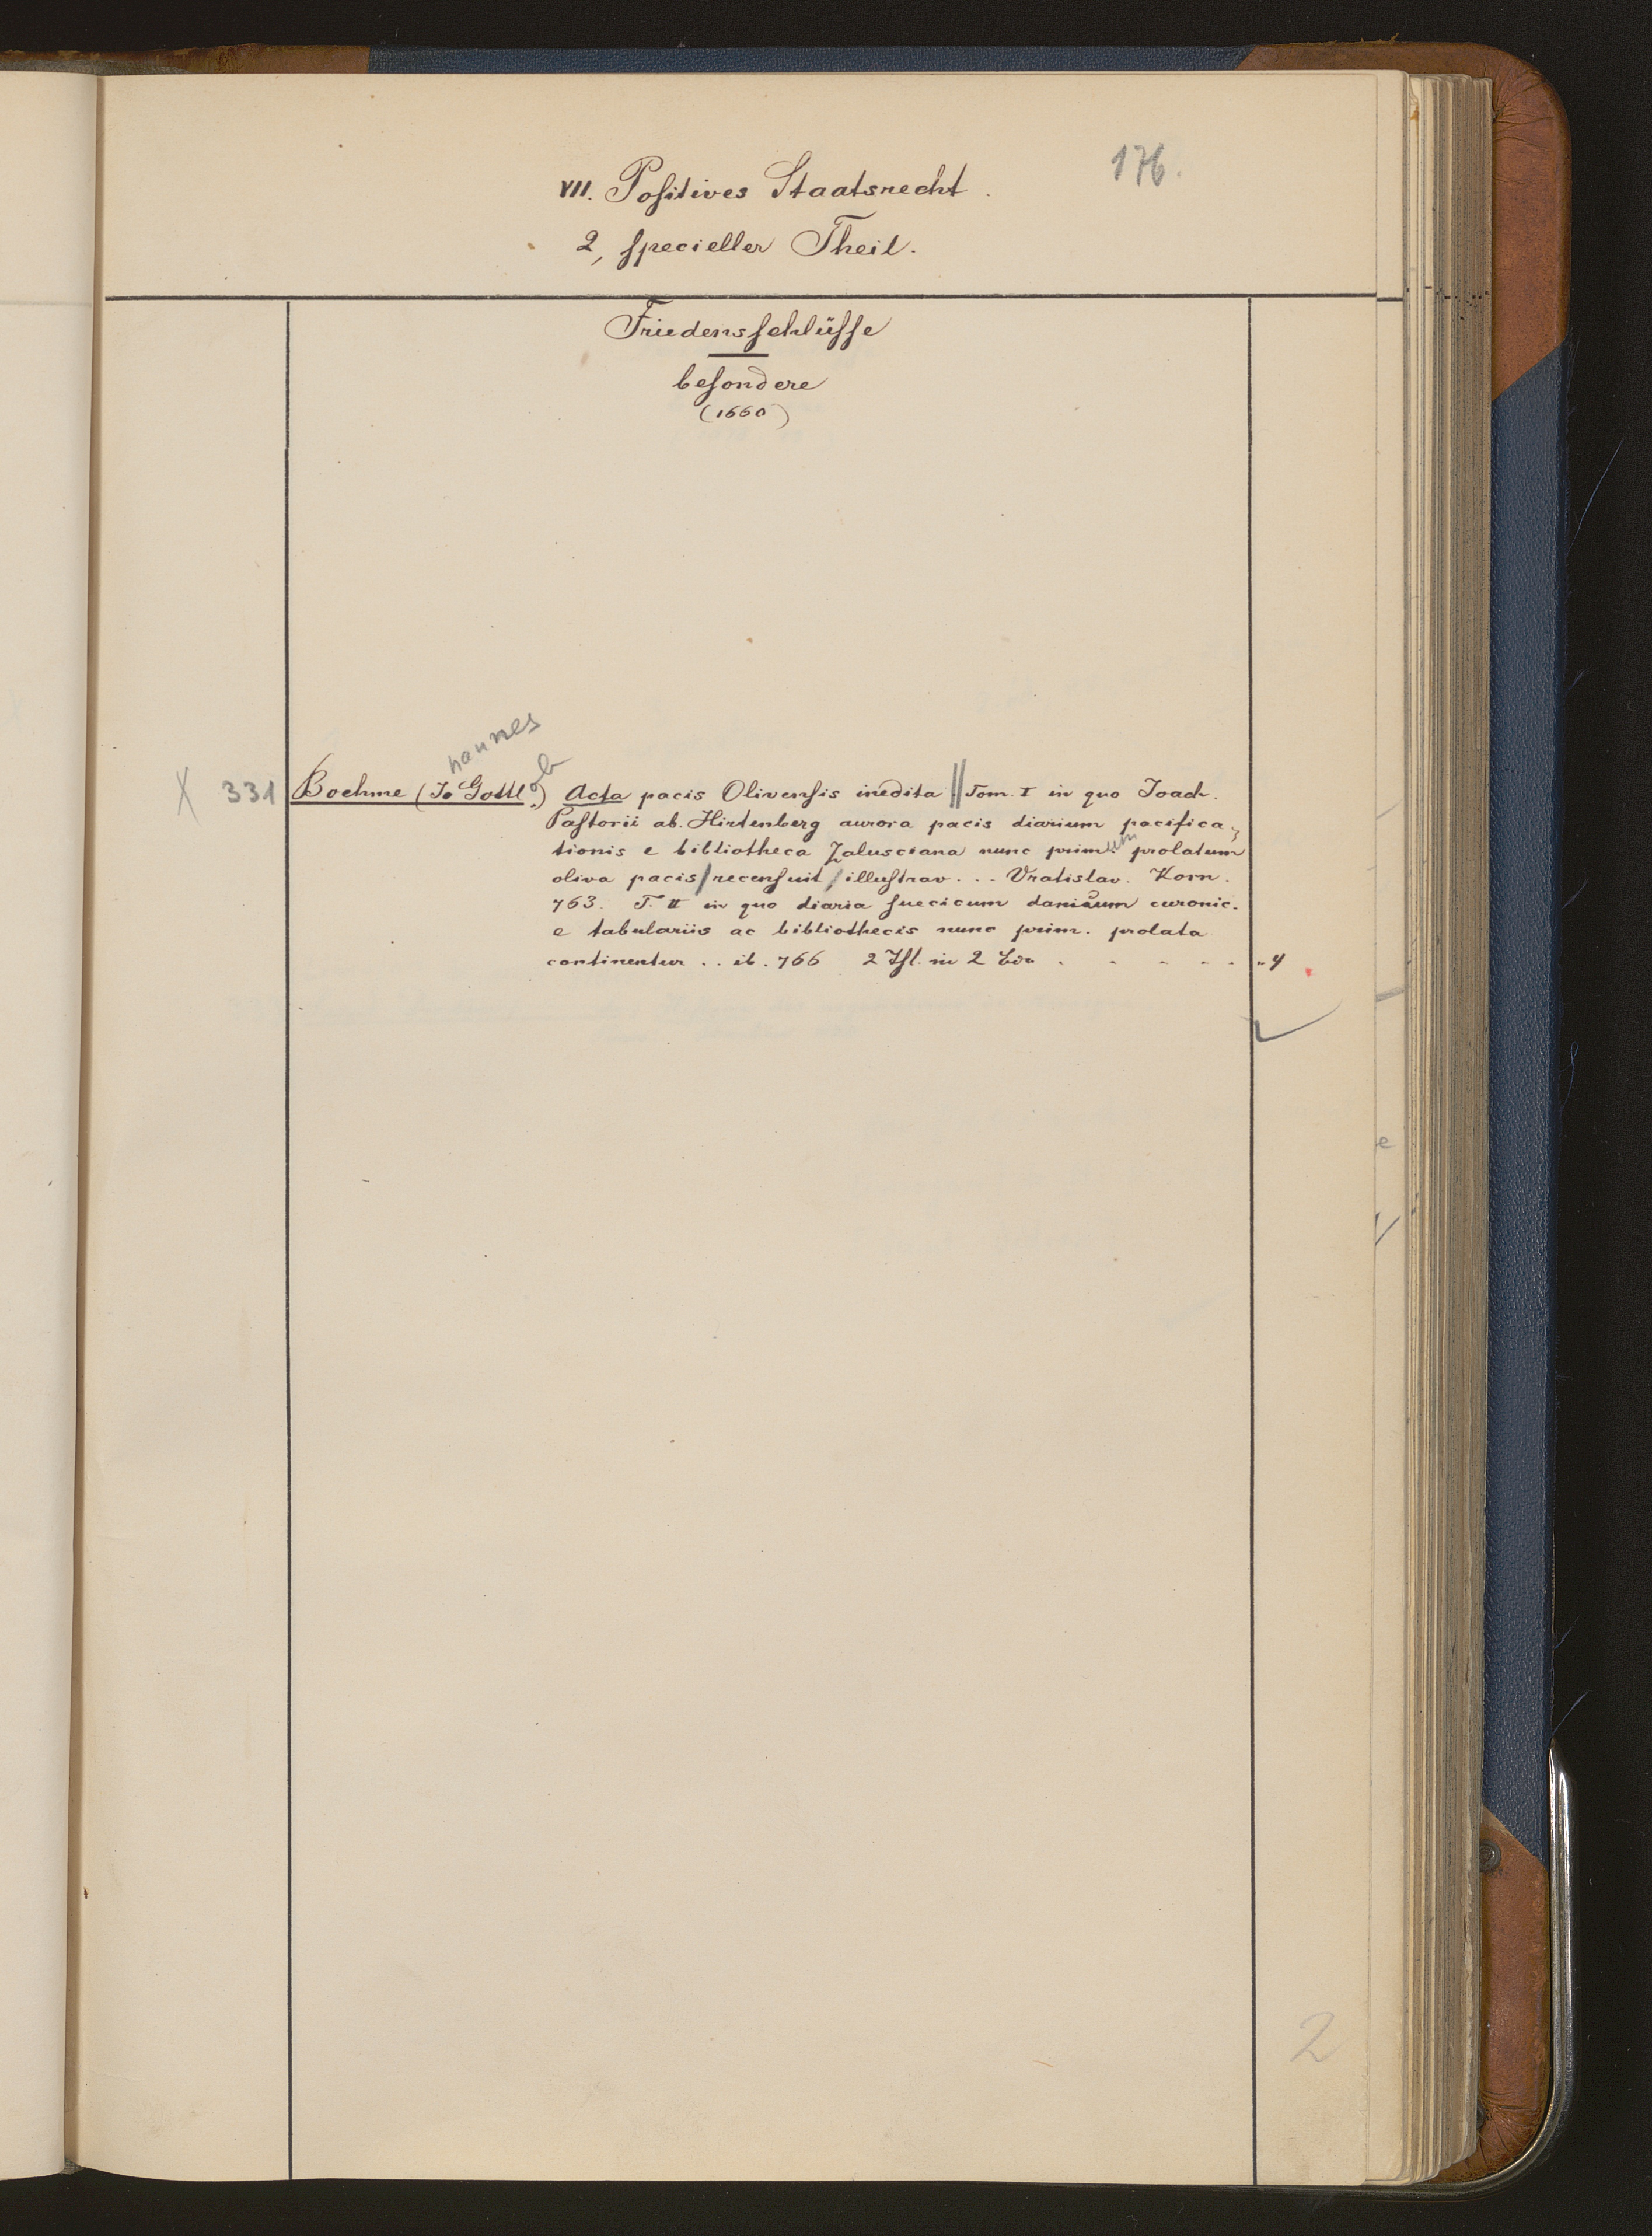 176.
VII. Positives Staatsrecht.
2, specieller Theil.
Friedensschlüsse
besondere
(1660)
hannes
ob
X 331 Boehme (Jo Gottl.) Acta pacis Olivensis inedita || Tom. I in quo Joach.
Pastorii ab. Hirtenberg aurora pacis diarium pacifica-
tionis e bibliotheca Zalusciana nunc primum prolatum
oliva pacis / recensuit / illustrav... Vratislav. Korn.
763. T. II in quo diaria suecicum danicum curonic.
e tabulariis ac bibliothecis nunc prim. prolata
continentur .. ib. 766 2 Thl. in 2 Bdn . . . . . . "4
2